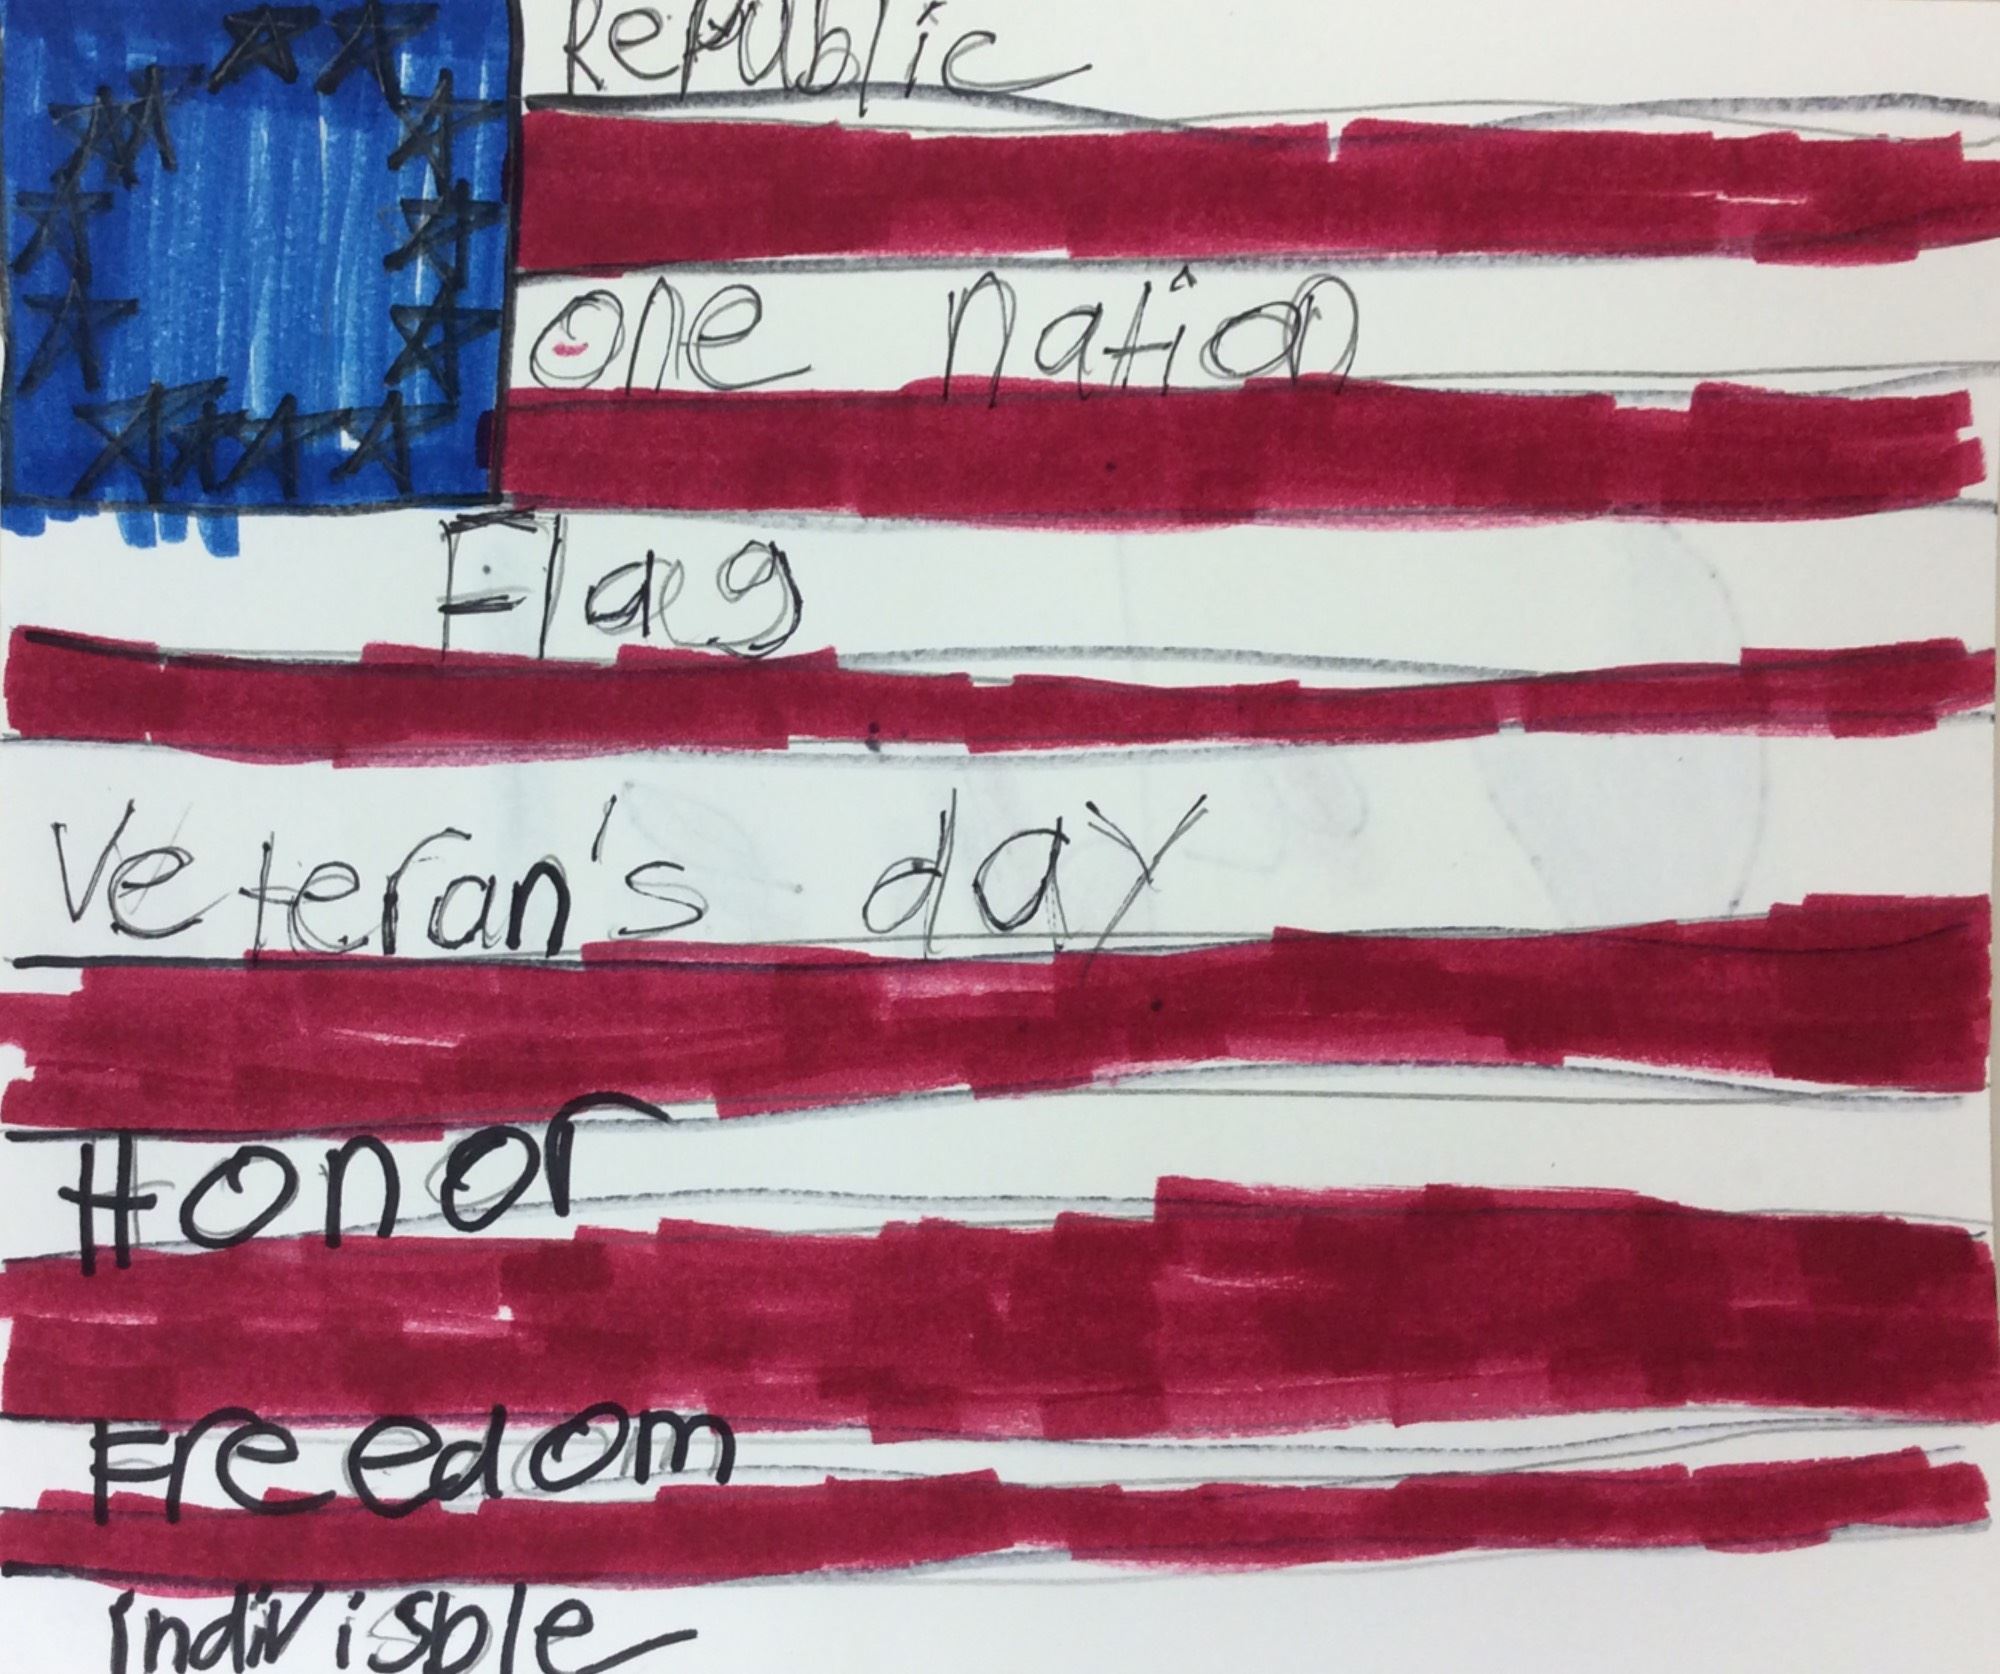 Republic
one nation
Flag
Veteran's day
Honor
Freedom
indivisble